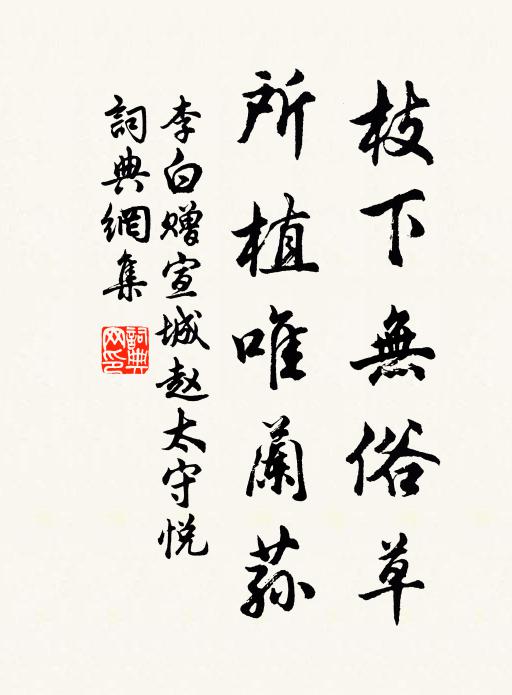 枝下無俗草
所植唯蘭蓀
李白赠宣城赵太守悦
詞典網集
詞典網印